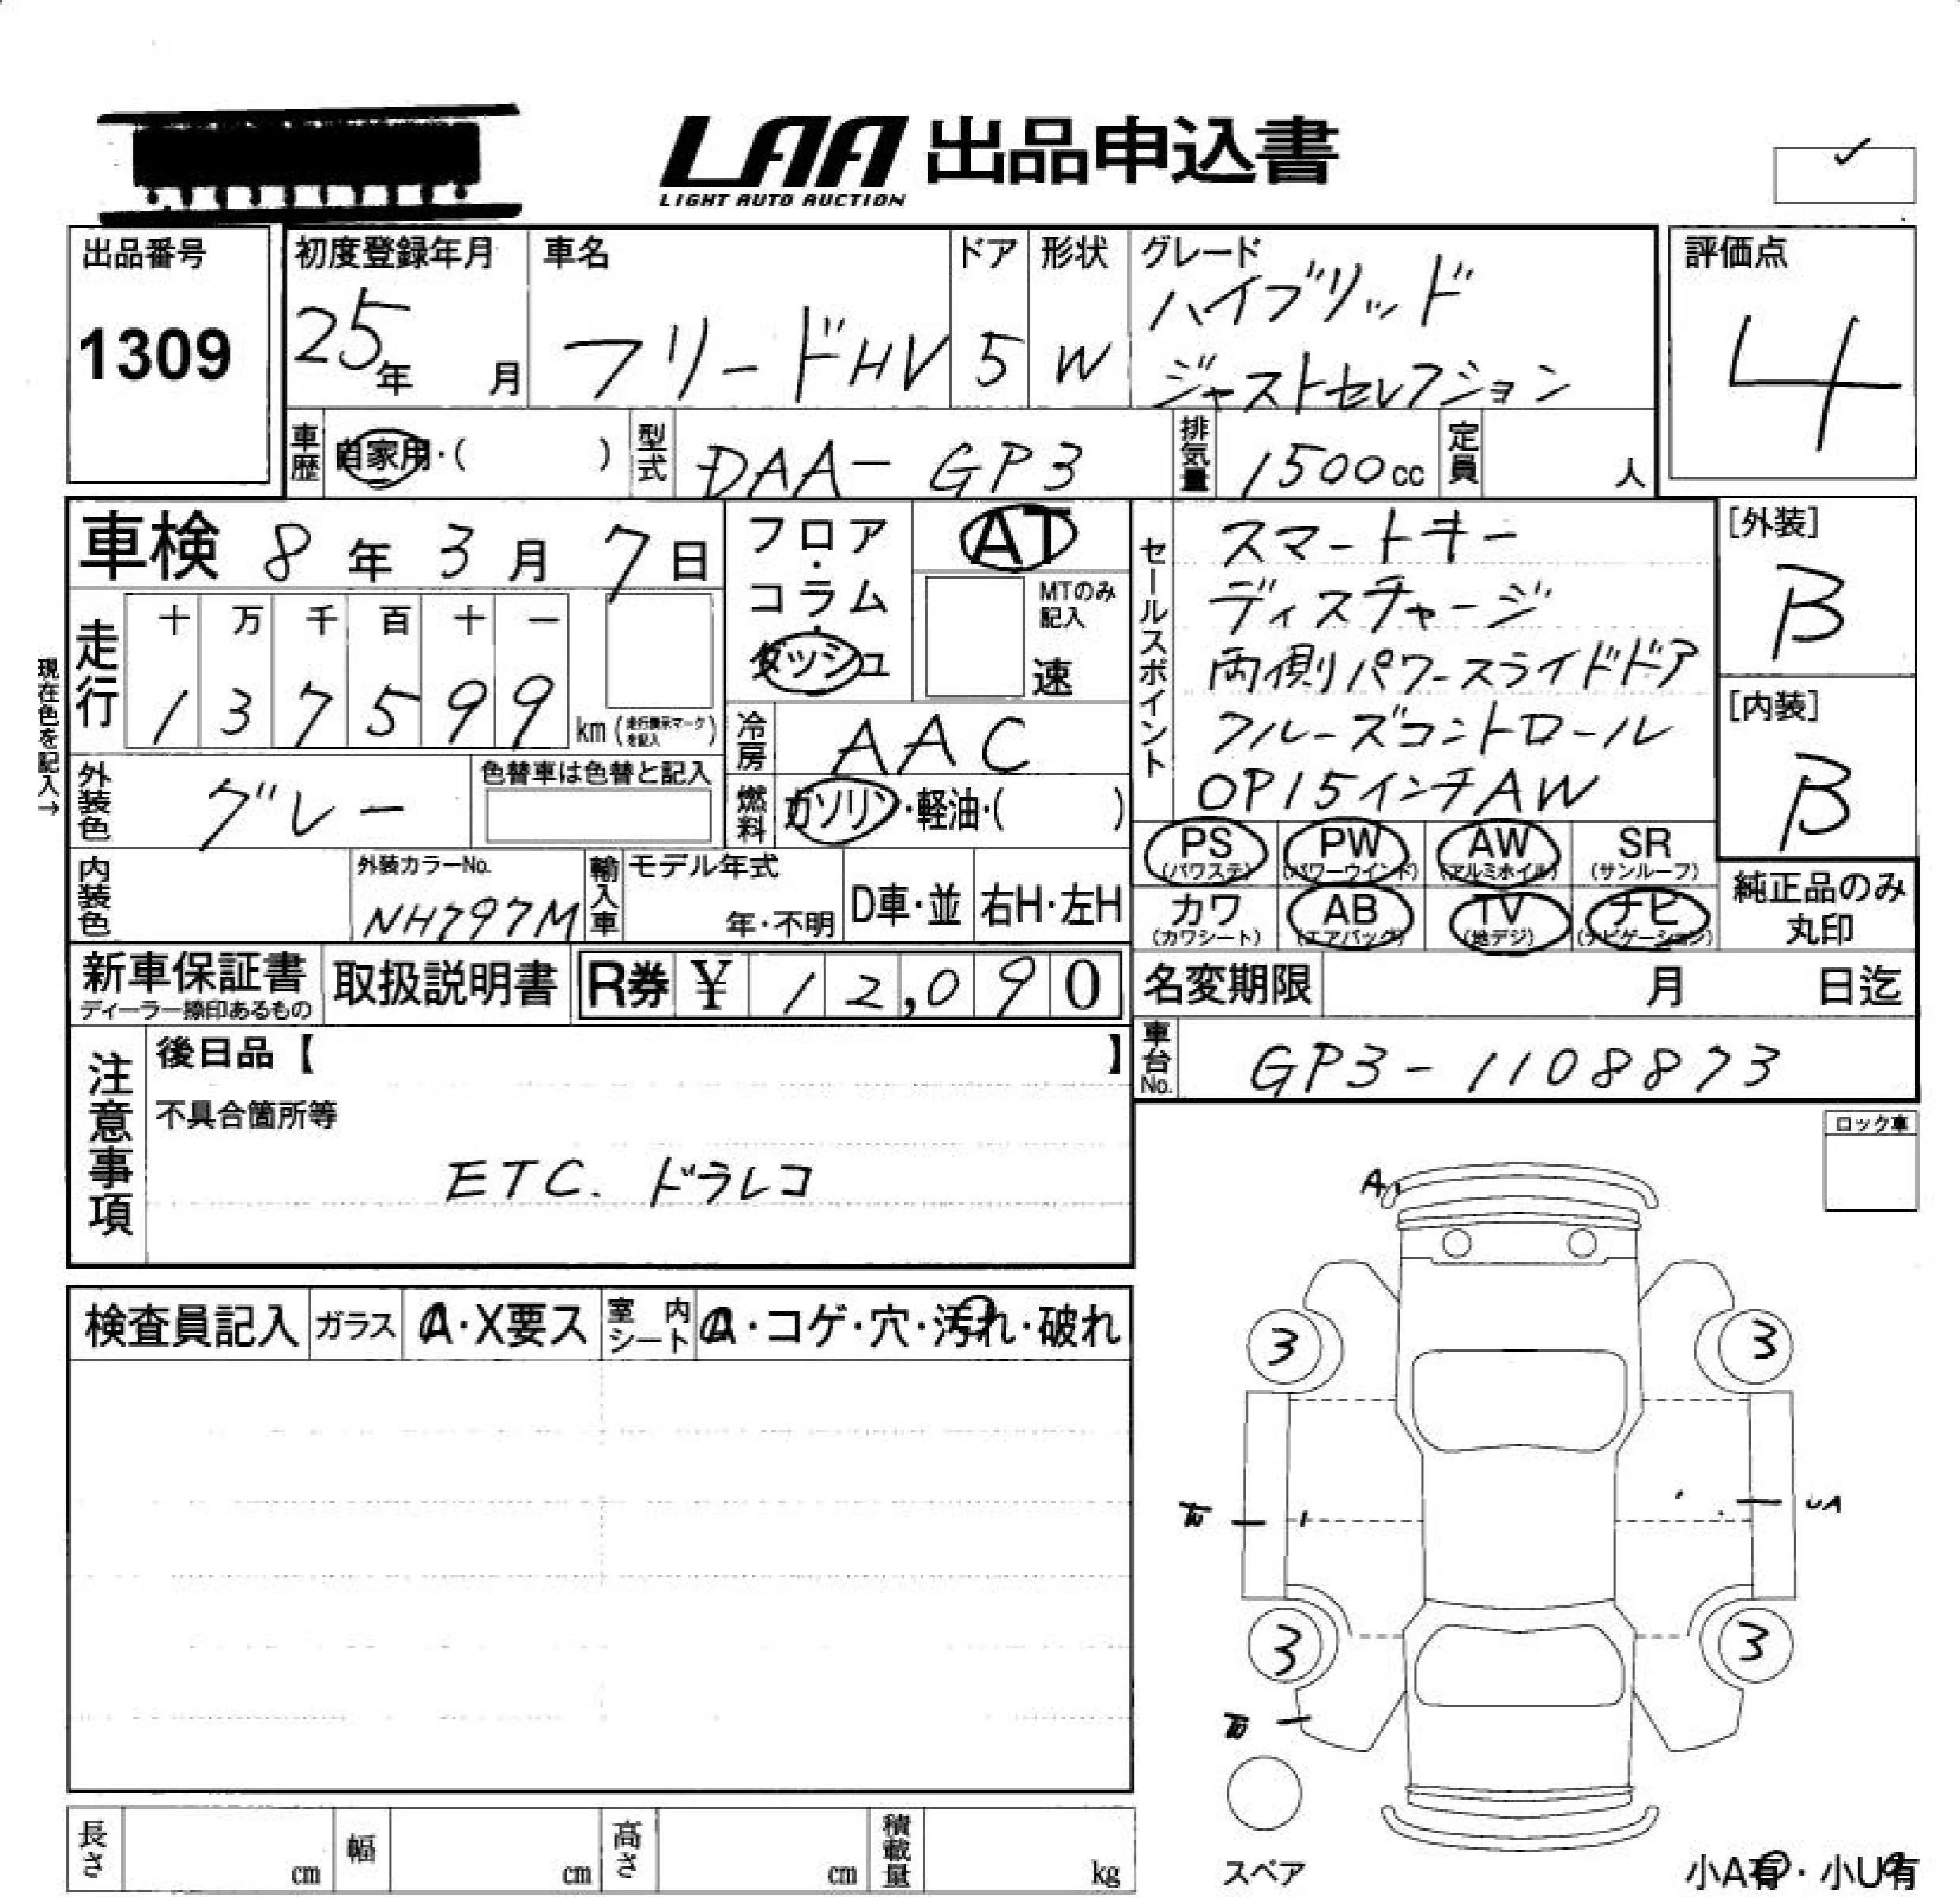 LAA 出品申込書
LIGHT AUTO AUCTION
出品番号
1309
初度登録年月
25年 月
車名
フリードHV
ドア
5
形状
W
グレード
ハイブリッド
ジャストセレクション
評価点
4
車歴 自家用・( )
型式 DAA-GP3
排気量 1500cc
定員 人
車検 8年 3月 7日
現在色を記入→
走行
十 万 千 百 十 一
1 3 7 5 9 9 km(走行表示マークを記入)
フロア・コラム・ダッシュ
AT
MTのみ記入
速
冷房 AAC
燃料 ガソリン・軽油・( )
外装色 グレー
色替車は色替と記入
内装色
外装カラーNo.
NH797M
輸入車
モデル年式
年・不明
D車・並
右H・左H
セールスポイント
スマートキー
ディスチャージ
両側パワースライドドア
クルーズコントロール
OP15インチAW
[外装]
B
[内装]
B
PS (パワステ)
PW (パワーウインド)
AW (アルミホイル)
SR (サンルーフ)
カワ (カワシート)
AB (エアバッグ)
TV (地デジ)
ナビ (ナビゲーション)
純正品のみ
丸印
新車保証書
ディーラー捺印あるもの
取扱説明書
R券 ¥ 12,090
名変期限 月 日迄
車台No. GP3-1108873
注意事項
後日品【 】
不具合箇所等
ETC. ドラレコ
ロック車
検査員記入
ガラス A・X要ス
室内シート ・コゲ・穴・汚れ・破れ
A
3 3
UA
3 3
スペア
小A有・小U有
長さ cm
幅 cm
高さ cm
積載量 kg